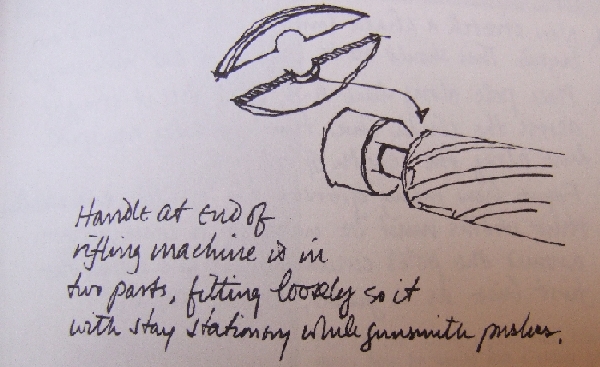 Handle at end of
rifling machine is in
two parts, fitting loosely so it
with stay stationary while gunsmith pushes.